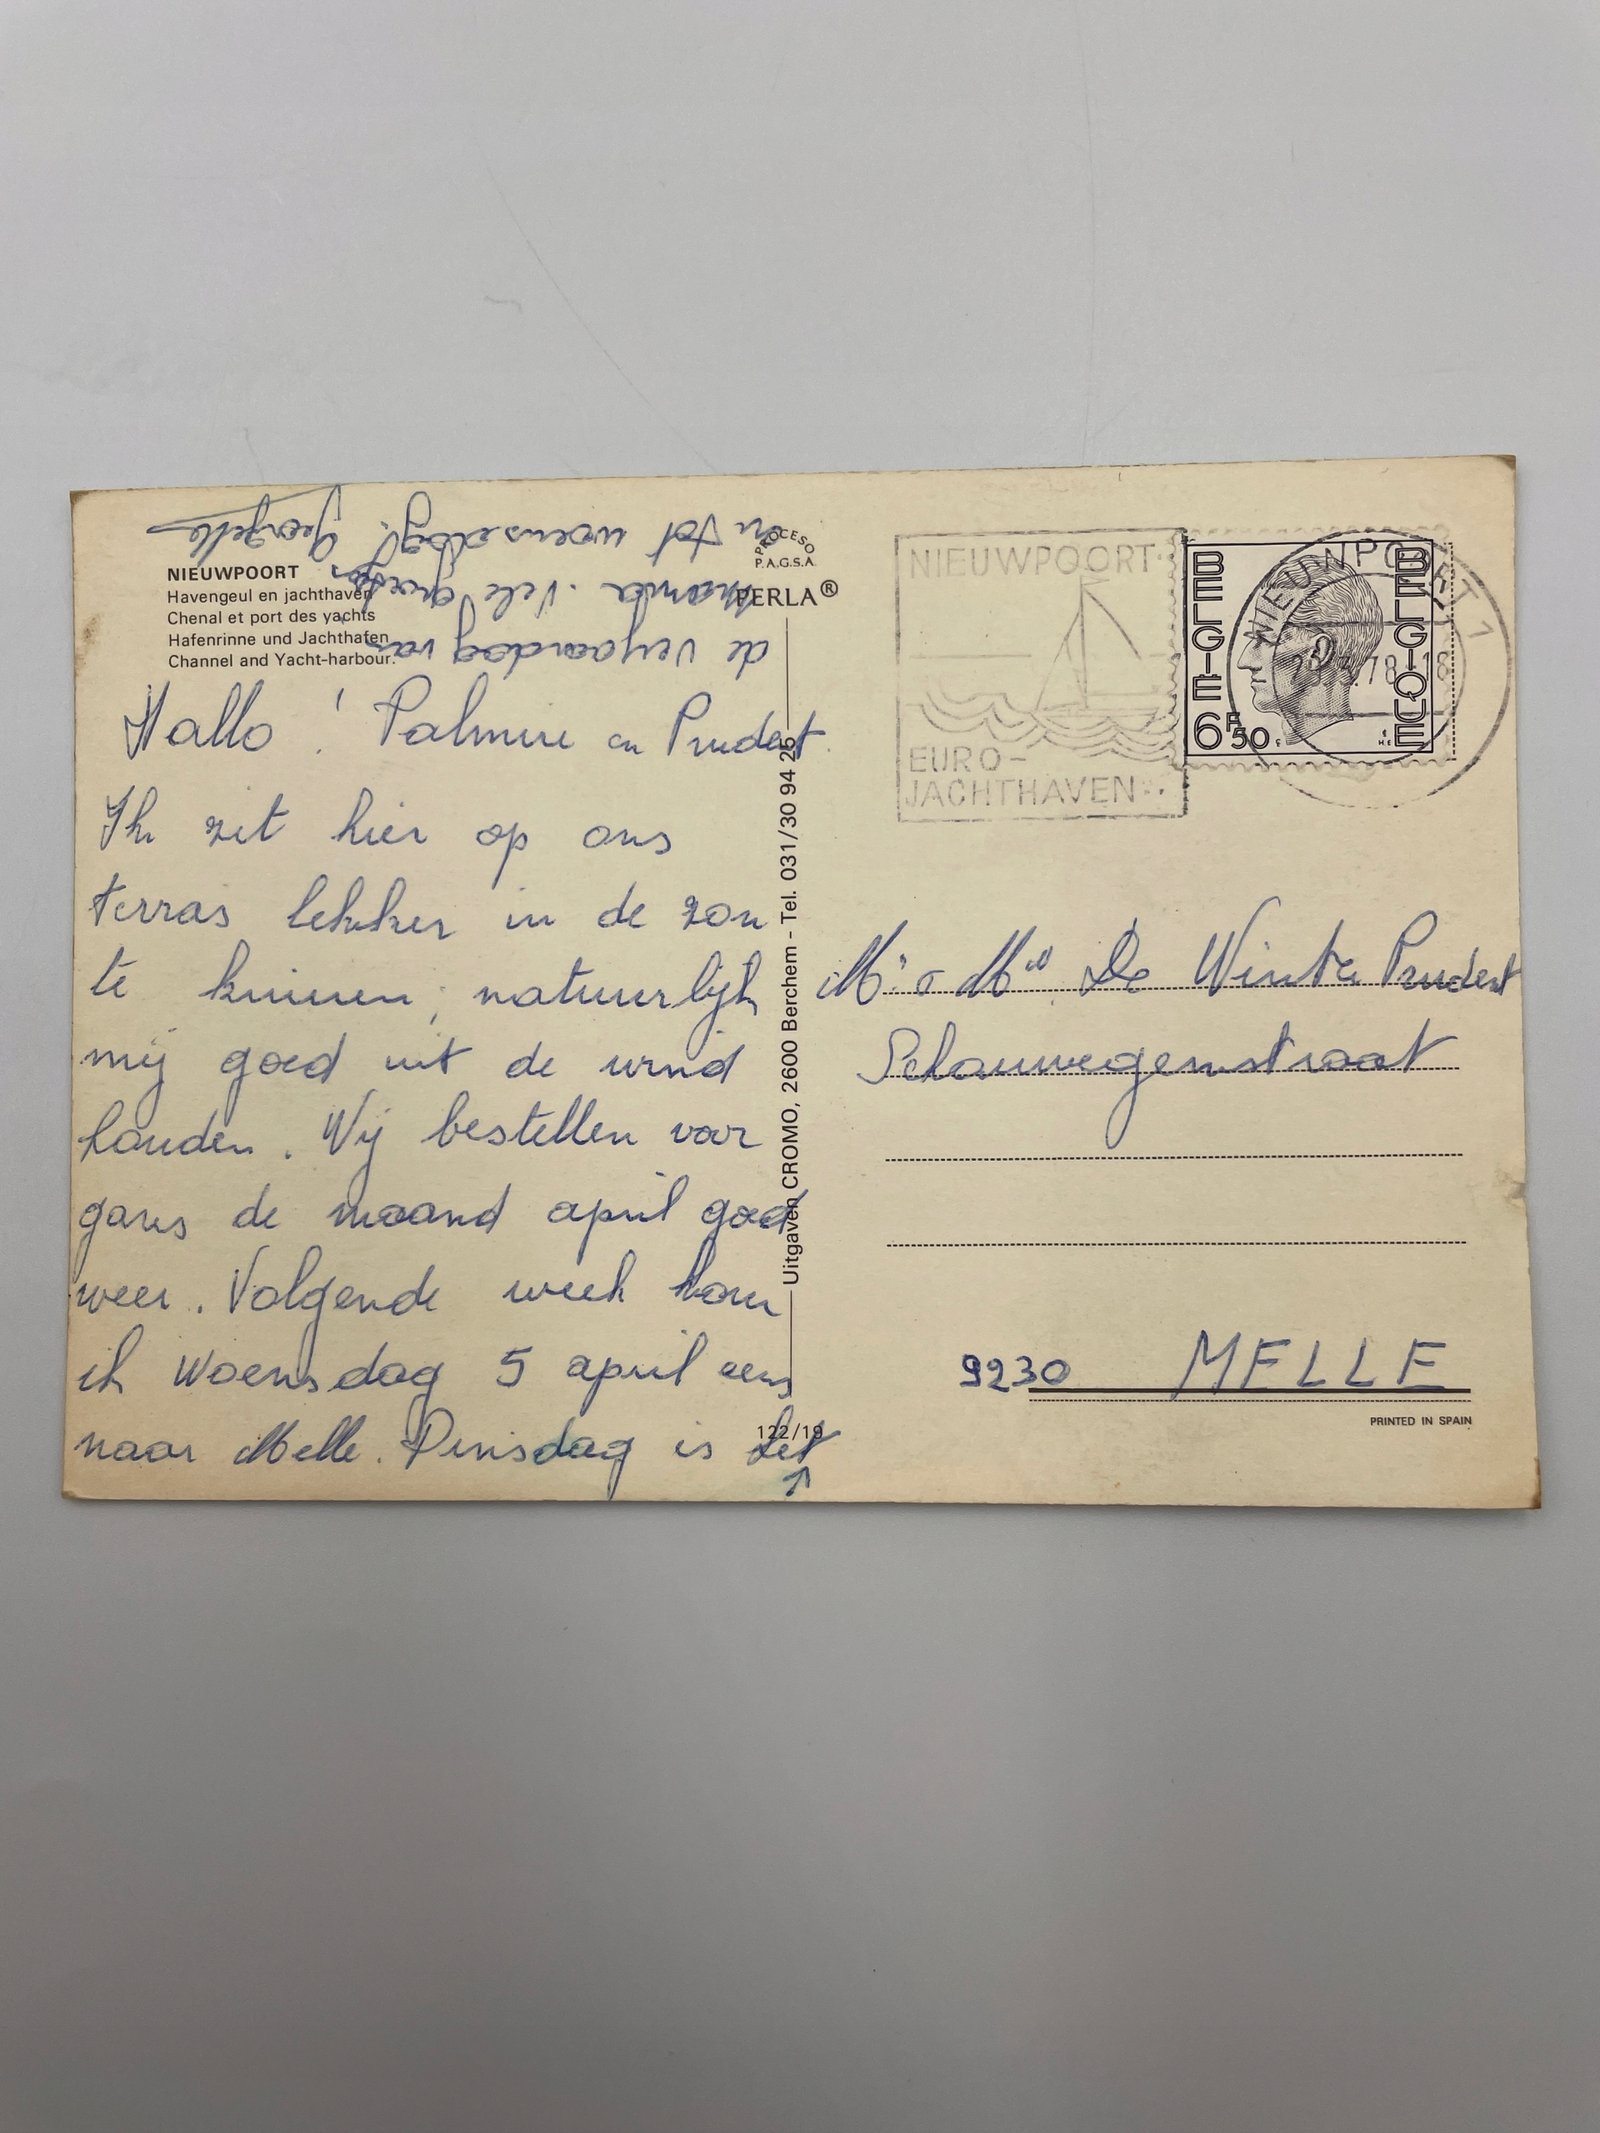 NIEUWPOORT
Havengeul en jachthaven
Chenal et port des yachts
Hafenrinne und Jachthafen
Channel and Yacht-harbour.
PROCESO
P.A.G.S.A.
PERLA®
Hallo ! Palmire en Prudent
Ik zit hier op ons
terras lekker in de zon
te kninen, natuurlijk
mij goed uit de wind
houden. Wij bestellen voor
gans de maand april goed
weer. Volgende week kom
ik Woensdag 5 april eens
naar Melle. Dinsdag is het
de verjaardag van
Vele groetjes
en tot woensdag! Georgette
Uitgaven CROMO, 2600 Berchem - Tel. 031/30 94 25
122/19
NIEUWPOORT
EURO-
JACHTHAVEN
NIEUWPOORT 1
78-18
BELGIE
BELGIQUE
6F50
Mr & Mw De Winter Prudent
Schauwegenstraat
9230 MELLE
PRINTED IN SPAIN